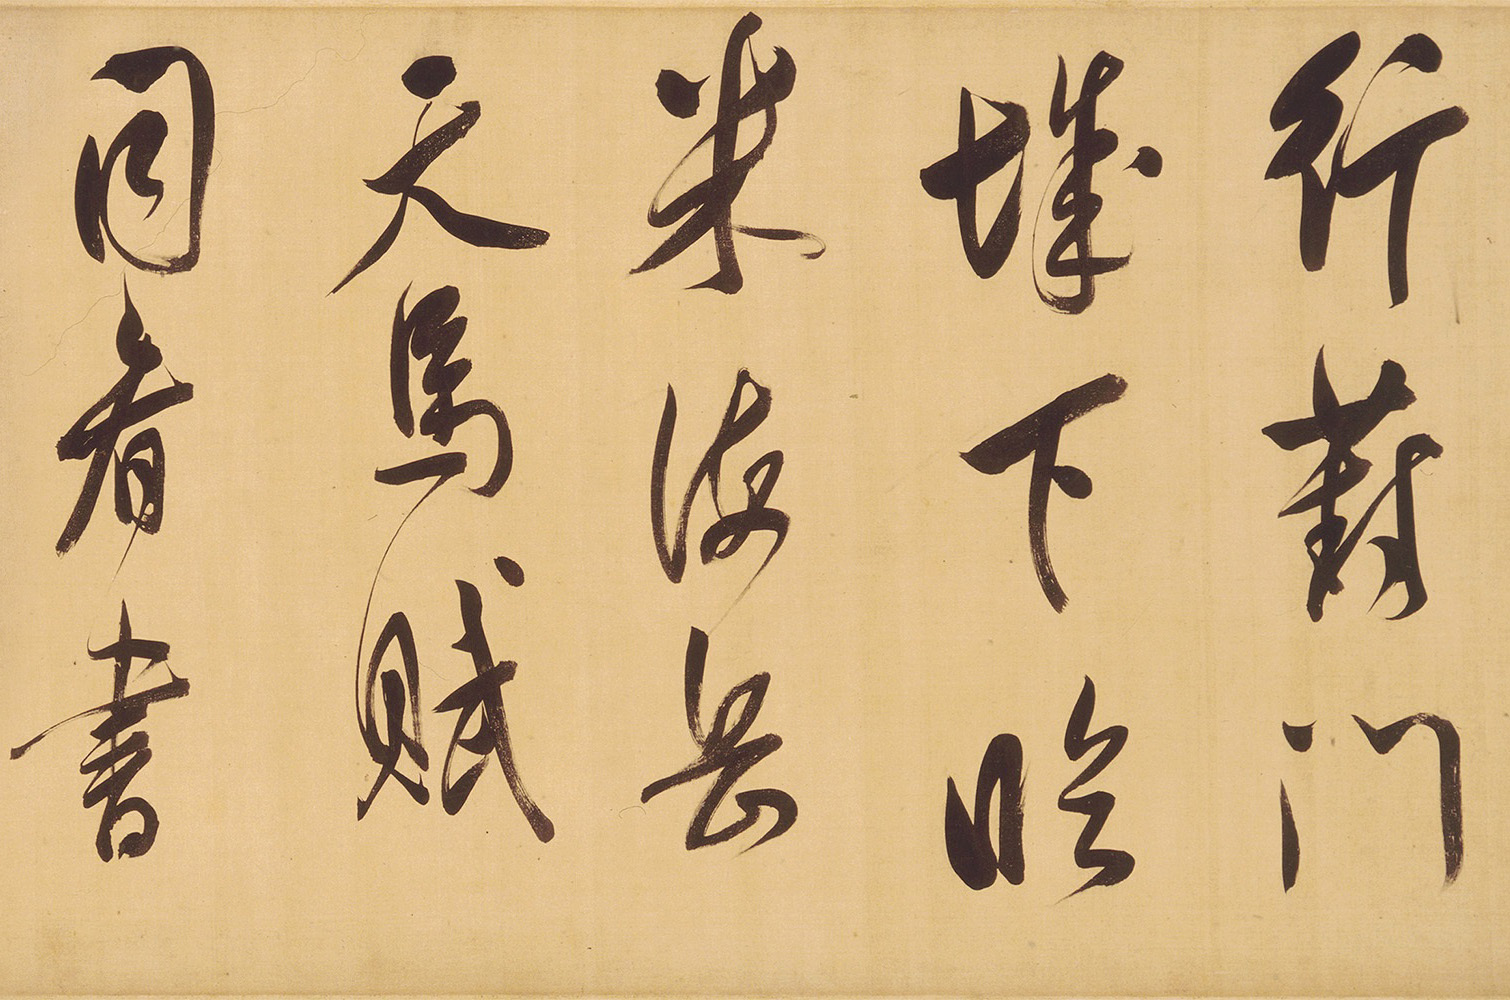 行葑門
城下臨
米海岳
天馬賦
同看書